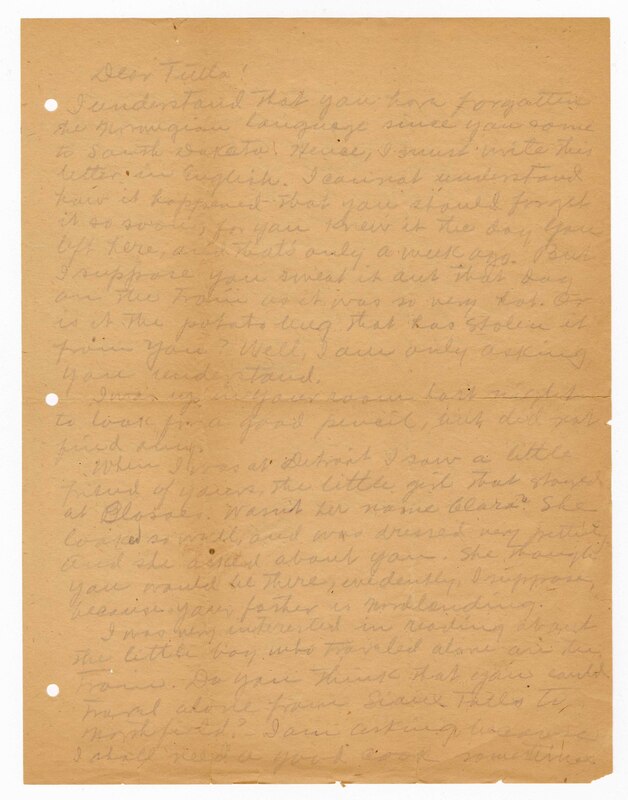 Dear Tulla!
I understand that you have forgotten
the Norwegian language since you came
to South Dakota! Hence, I must write this
letter in English. I cannot understand
how it happened that you should forget
it so soon, for you knew it the day you
left here, and that's only a week ago. But
I suppose you sweat it out that day
on the train as it was so very hot. Or
is it the potato bug that has stolen it
from you? Well, I am only asking,
you understand.
I was up in your room last night
to look for a good pencil, but did not
find any.
When I was at Detroit I saw a little
friend of yours, the little girl that stayed
at Wasn't her name Clara? She
looked so well, and was dressed very pretty,
and she asked about you. She thought
you would be there, evidently, I suppose,
because your father is
I was very interested in reading about
the little boy who traveled alone on the
train. Do you think that you could
travel alone from Sioux Falls to
Northfield? I am asking because
I shall need a good cook sometime.